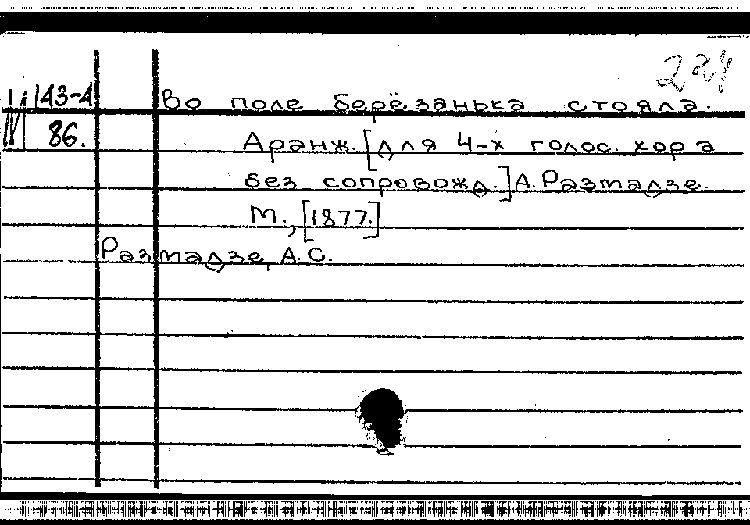 224
143-4 Во поле берёзанька стояла.
86. Аранж. [для 4-х голос. хора
без сопровожд.] А. Размадзе.
М., [1877.]
Размадзе, А.С.